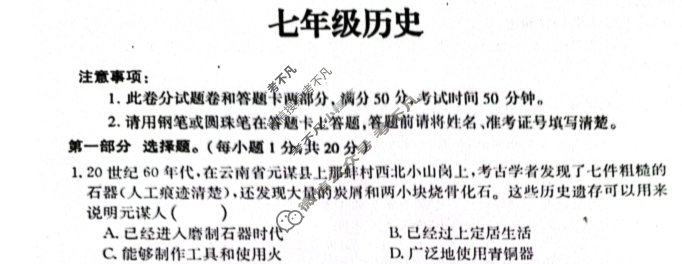 七年级历史
注意事项：
1. 此卷分试题卷和答题卡两部分，满分 50 分，考试时间 50 分钟。
2. 请用钢笔或圆珠笔在答题卡上答题，答题前请将姓名、准考证号填写清楚。
第一部分 选择题。（每小题 1 分，共 20 分）
1. 20 世纪 60 年代，在云南省元谋县上那蚌村西北小山岗上，考古学者发现了七件粗糙的
石器（人工痕迹清楚），还发现大量的炭屑和两小块烧骨化石。这些历史遗存可以用来
说明元谋人（ ）
A. 已经进入磨制石器时代
B. 已经过上定居生活
C. 能够制作工具和使用火
D. 广泛地使用青铜器